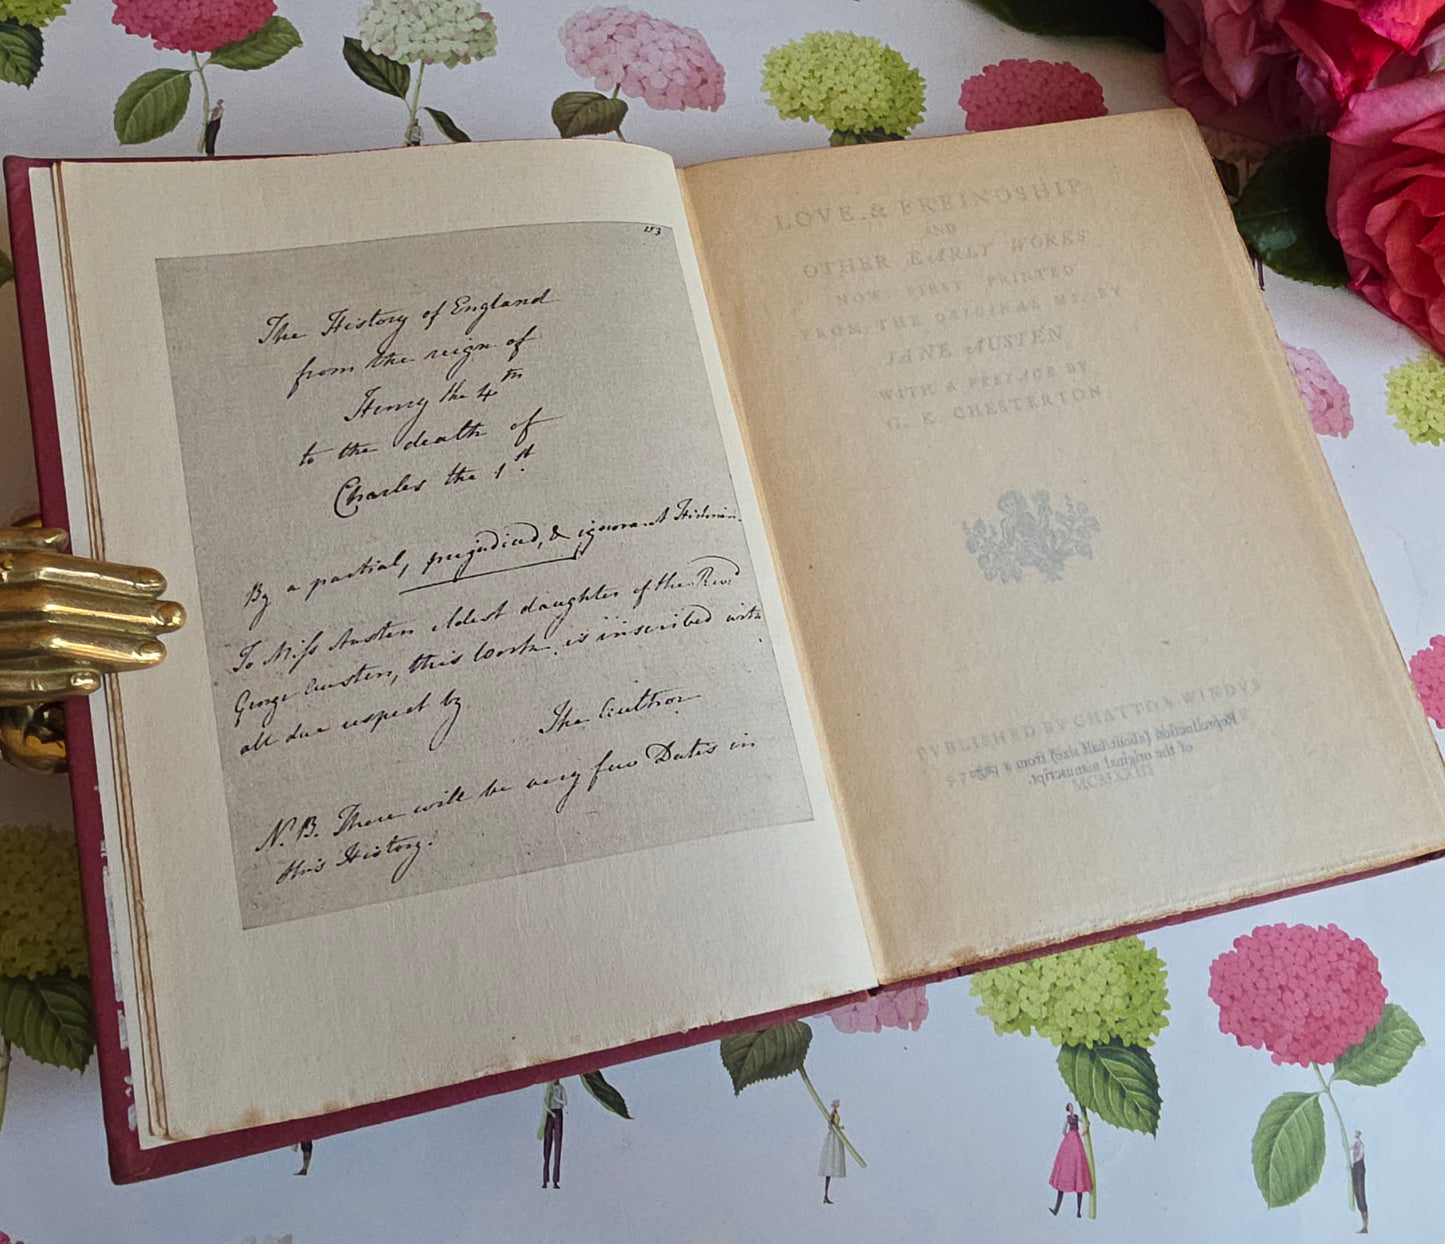 153
The History of England
from the reign of
Henry the 4th
to the death of
Charles the 1st.
By a partial, prejudiced, & ignorant Historian.
To Miss Austen eldest daughter of the Revd
George Austen, this Work is inscribed with
all due respect by
The Author
N.B. There will be very few Dates in
this History.
LOVE & FREINDSHIP
AND
OTHER EARLY WORKS
NOW FIRST PRINTED
FROM THE ORIGINAL MS. BY
JANE AUSTEN
WITH A PREFACE BY
G. K. CHESTERTON
PVBLISHED BY CHATTO & WINDVS
Reproduction (about half size) from a page
of the original manuscript.
MCMXXII